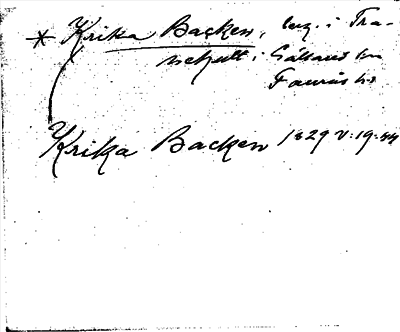 * Krika Backen, bez. i Tra-
nekult i Gällared sn
Faurås hd
Krika Backen 1829 V:19:44